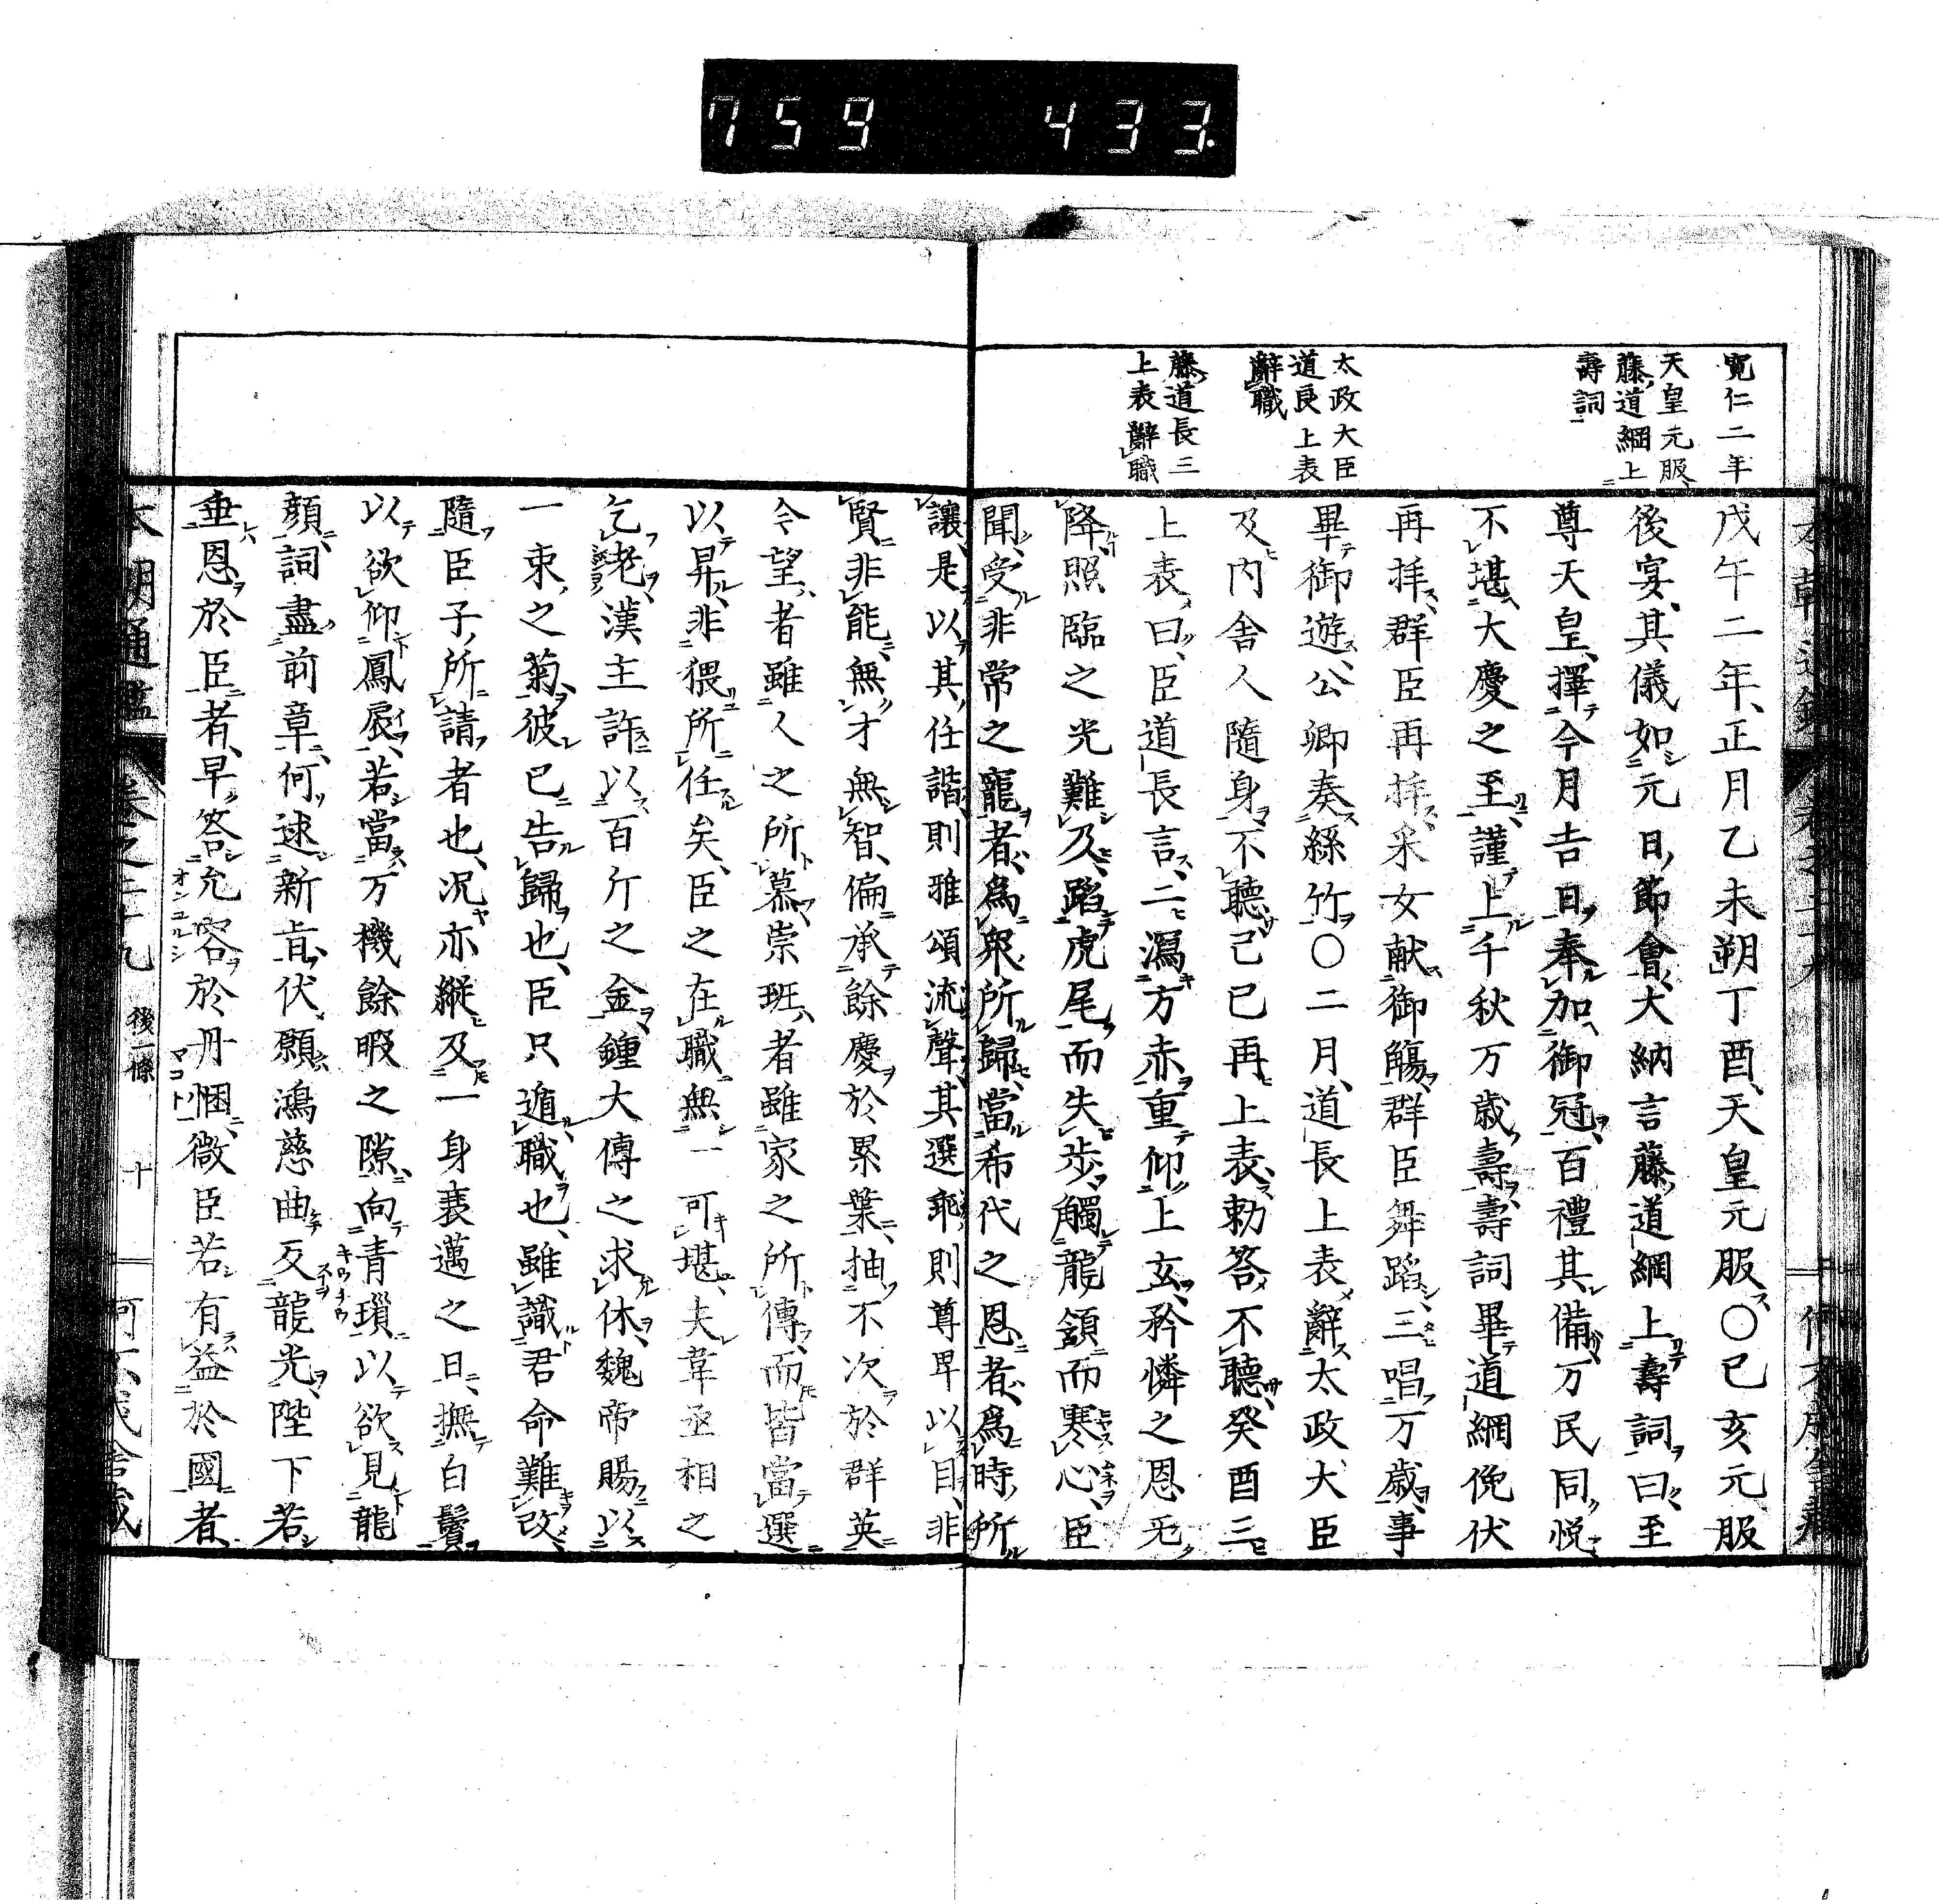 759 433.
寛仁二年
天皇元服
藤道綱上
壽詞
太政大臣
道長上表
辭職
藤道長三
上表辭職
戊午二年、正月乙未朔丁酉、天皇元服〇己亥元服
後宴、其儀如元日節會、大納言藤道綱上壽詞曰、至
尊天皇、擇今月吉日、奉加御冠、百禮其備、万民同悦
不堪大慶之至、謹上千秋万歳壽、壽詞畢道綱俛伏
再拜、群臣再拜、采女献御觴、群臣舞蹈、三唱万歳、事
畢御遊、公卿奏絲竹〇二月、道長上表辭太政大臣
及内舎人隨身、不聽己巳再上表、勅答不聽、癸酉三
上表曰、臣道長言、二瀉方赤重仰上玄、矜憐之恩、无
降照臨之光難及、蹈虎尾而失步、觸龍頷而寒心、臣
聞、受非常之寵者、爲衆所歸、當希代之恩者、爲時所
讓、是以其任諧、則雅頌流聲、其選乖、則尊卑以目、非
賢非能、無才無智、偏承餘慶於累葉、抽不次於群英
令望者雖人之所慕、崇班者雖家之所傳、而皆當選
以昇、非猥所任矣、臣之在職、無一可堪、夫韋丞相之
乞老、漢主許以百斤之金、鍾大傳之求休、魏帝賜以
一束之菊、彼已告歸也、臣只遁職也、雖識君命難改、
隨臣子所請者也、况亦縦及一身衰邁之日、撫白鬢
以欲仰鳳扆、若當万機餘暇之隙、向青瑣以欲見龍
顔、詞盡前章、何逑新旨、伏願鴻慈曲反龍光、陛下若
垂恩於臣者、早答允容於丹悃、微臣若有益於國者、
本朝通鑑 卷之二十九 後一條 十